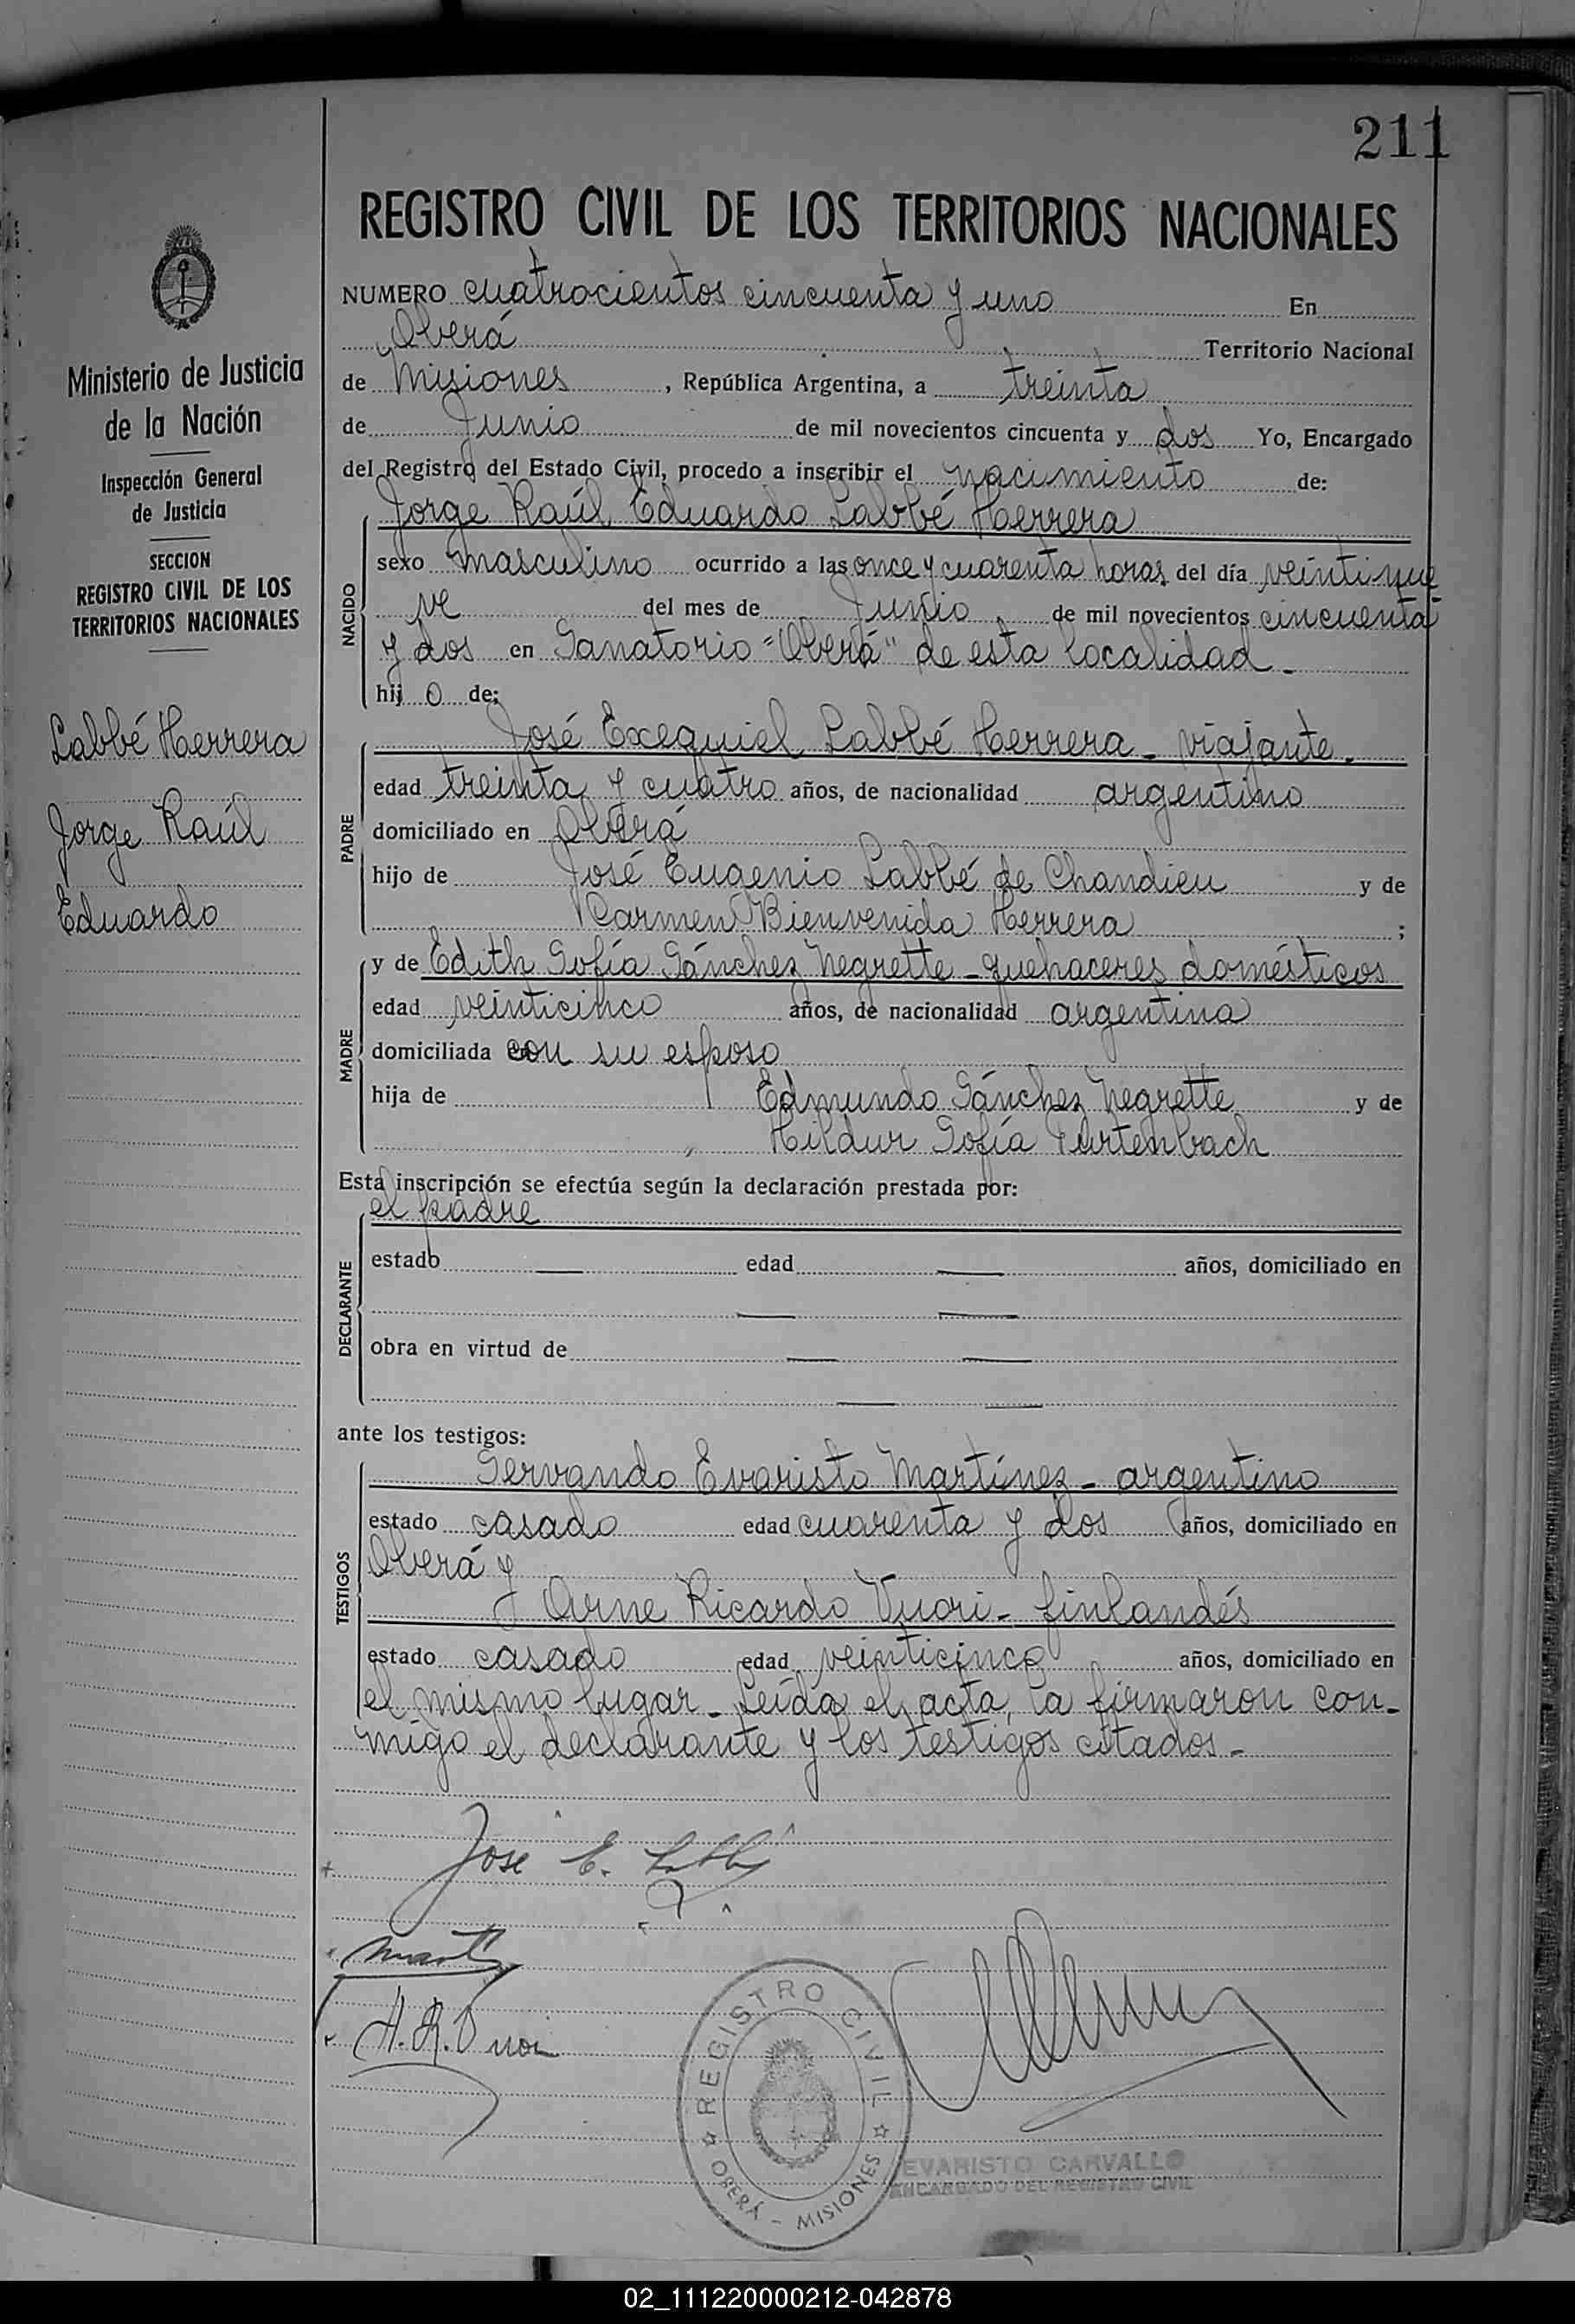 211
REGISTRO CIVIL DE LOS TERRITORIOS NACIONALES
Ministerio de Justicia
de la Nación
Inspección General
de Justicia
SECCION
REGISTRO CIVIL DE LOS
TERRITORIOS NACIONALES
Labbé Herrera
Jorge Raúl
Eduardo
NUMERO cuatrocientos cincuenta y uno En
Oberá Territorio Nacional
de Misiones, República Argentina, a treinta
de Junio de mil novecientos cincuenta y dos Yo, Encargado
del Registro del Estado Civil, procedo a inscribir el nacimiento de:
NACIDO
Jorge Raúl Eduardo Labbé Herrera
sexo masculino ocurrido a las once y cuarenta horas del día veintinue
ve del mes de Junio de mil novecientos cincuenta
y dos en Sanatorio "Oberá" de esta localidad_
hijo de:
PADRE
José Exequiel Labbé Herrera_ viajante_
edad treinta y cuatro años, de nacionalidad argentino
domiciliado en Oberá
hijo de José Eugenio Labbé de Chandieu y de
Carmen Bienvenida Herrera ;
MADRE
y de Edith Sofía Sánchez Negrette_quehaceres domésticos
edad veinticinco años, de nacionalidad argentina
domiciliada con su esposo
hija de Edmundo Sánchez Negrette y de
Hildur Sofía Furtenbach
Esta inscripción se efectúa según la declaración prestada por:
DECLARANTE
el padre
estado — edad — años, domiciliado en
— —
obra en virtud de — —
— —
ante los testigos:
TESTIGOS
Servando Evaristo Martínez_ argentino
estado casado edad cuarenta y dos años, domiciliado en
Oberá y
Arne Ricardo Vuori_ finlandés
estado casado edad veinticinco años, domiciliado en
el mismo lugar_ Leída el acta, la firmaron con-
migo el declarante y los testigos citados_
José E. Labbé
A. R. Vuori
REGISTRO CIVIL
OBERÁ - MISIONES
EVARISTO CARVALLO
ENCARGADO DEL REGISTRO CIVIL
02_111220000212-042878